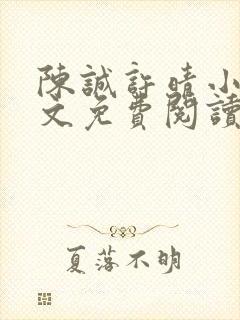 陳誠許晴小
文免費閱讀
夏落不明